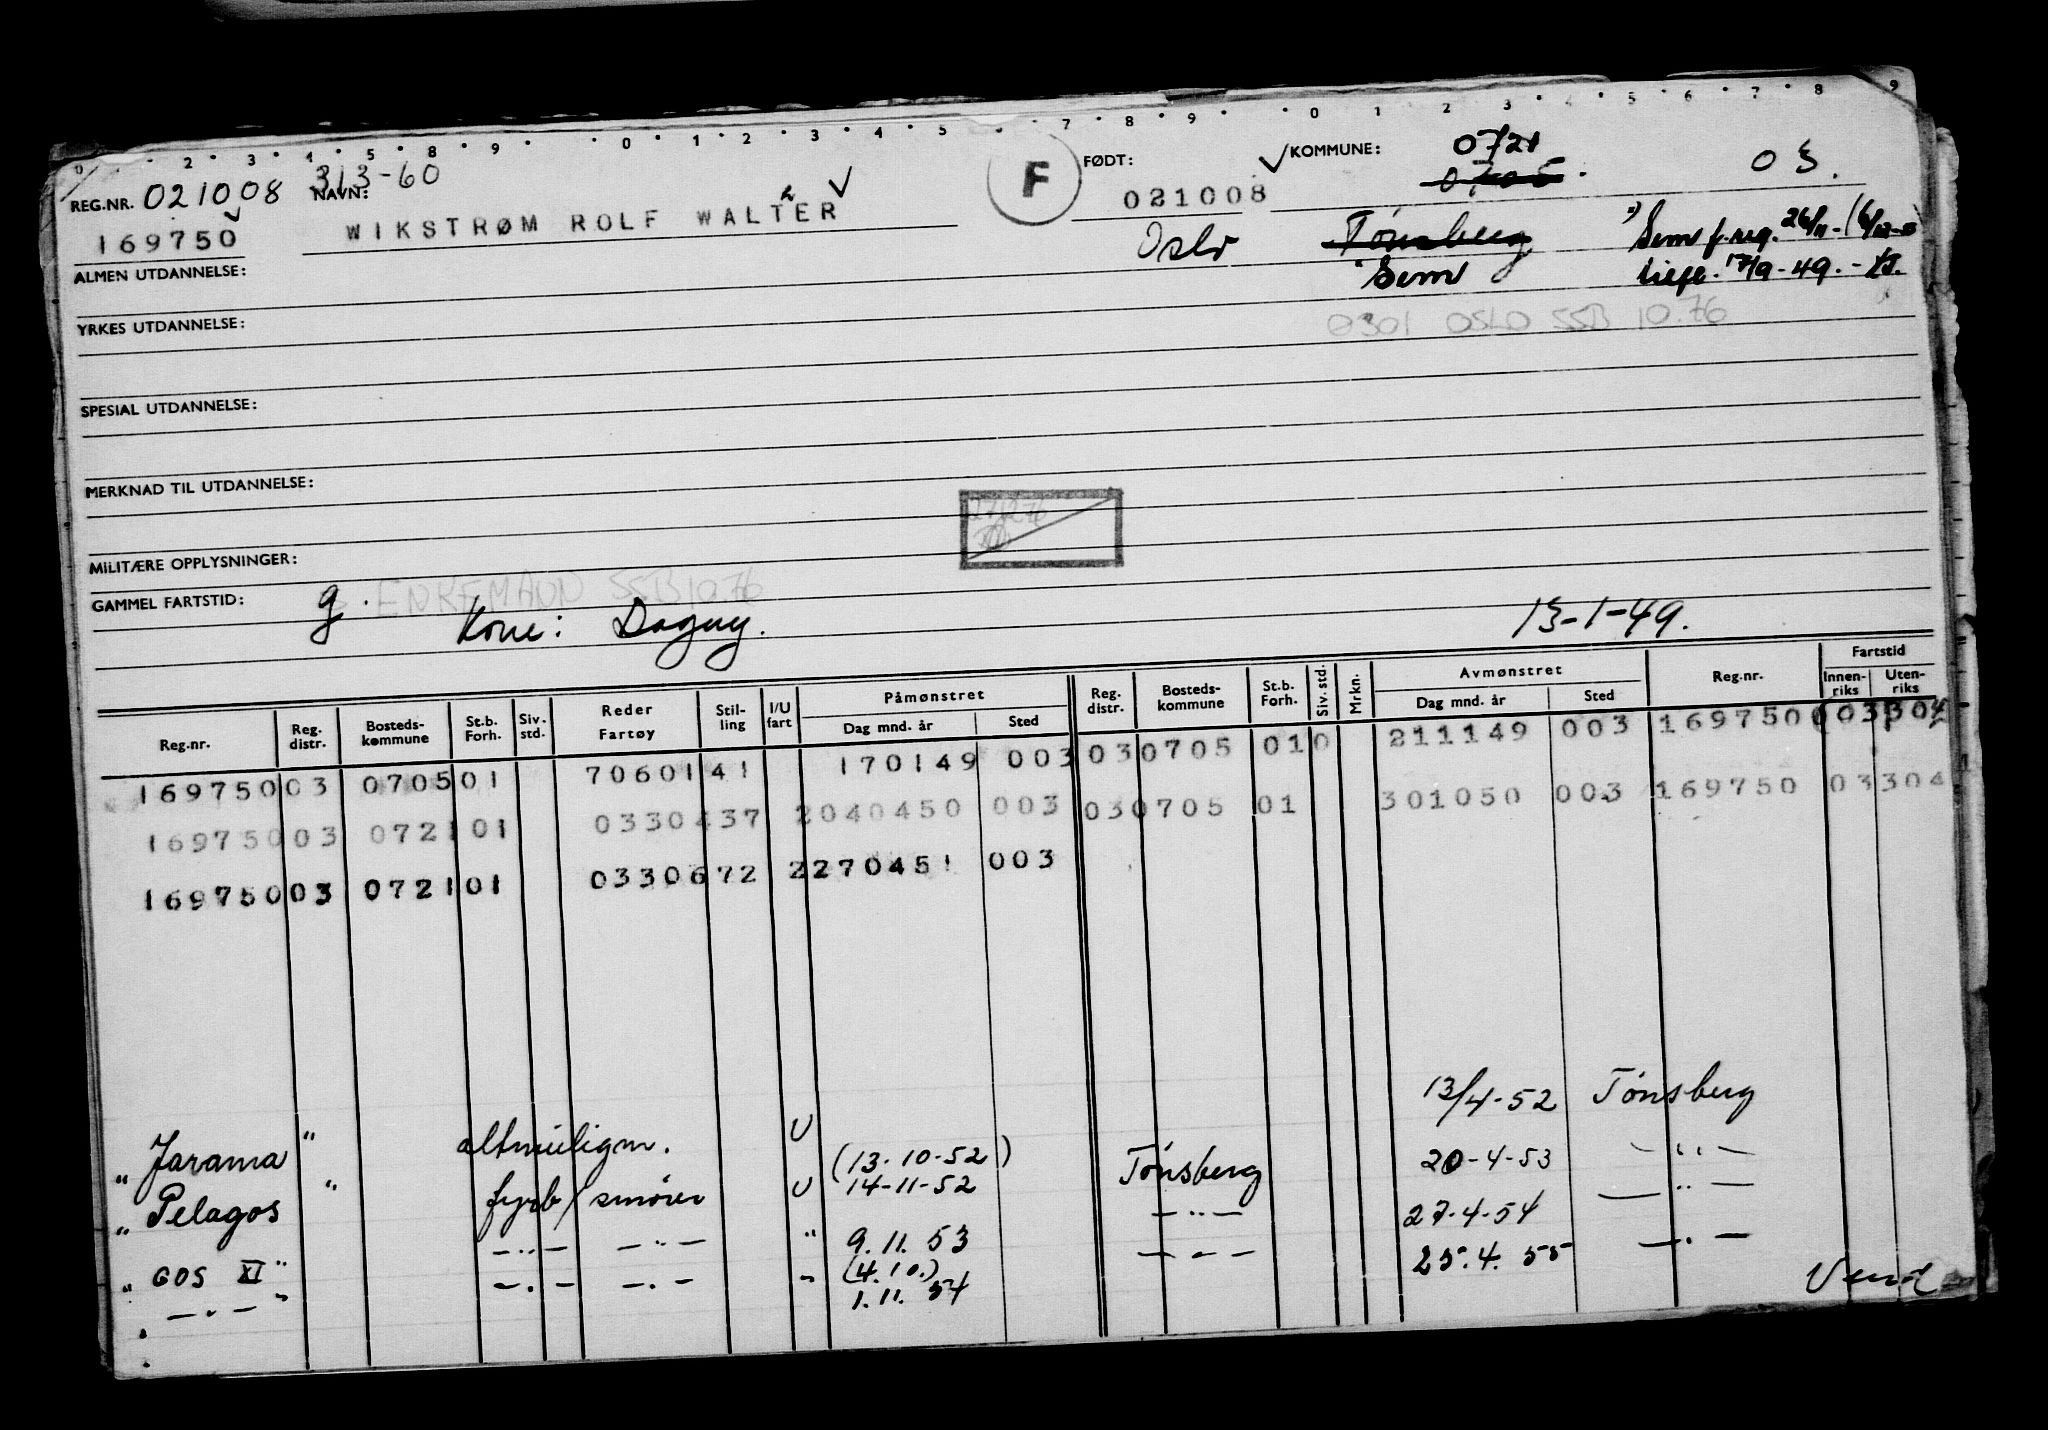 0 1 2 3 4 5 6 7 8 9 0 1 2 3 4 5 7 8 9 0 1 2 3 4 5 6 7 8 9
REG.NR. 021008 313-60 NAVN: F FØDT: KOMMUNE: 0721 03.
0705
169750 WIKSTRØM ROLF WALTER 021008
Oslo Tønsberg Sem f.reg. 26/11-
Sem 17/9-49.-
ALMEN UTDANNELSE:
YRKES UTDANNELSE: 0301 OSLO SSB 10.76
SPESIAL UTDANNELSE:
MERKNAD TIL UTDANNELSE:
MILITÆRE OPPLYSNINGER:
GAMMEL FARTSTID: g. ENKEMANN SSB 10.76
Kone: Dagny. 13-1-49.
Reg.nr. Reg. distr. Bosteds-kommune St.b. Forh. Siv. std. Reder Fartøy Stil-ling I/U fart Påmønstret Dag mnd. år Sted Reg. distr. Bosteds-kommune St.b. Forh. Siv. std. Mrkn. Avmønstret Dag mnd. år Sted Reg.nr. Fartstid Innen-riks Uten-riks
169750 03 0705 01 70601 41 170149 003 03 0705 01 0 211149 003 169750 003 304
169750 03 0721 01 0330437 2040450 003 03 0705 01 301050 003 169750 03 304
169750 03 0721 01 0330672 2270451 003
13/4-52 Tønsberg
" Jarama " altmuligm. U (13-10-52) Tønsberg 20-4-53 — " —
" Pelagos " fyrb/smører U 14-11-52 — " — 27-4-54 — " —
" GOS XI " — " — — " — " 9.11.53 — " — 25.4.55 — " —
— " — " — " — — " — " (4.10.) Vend
1.11.54